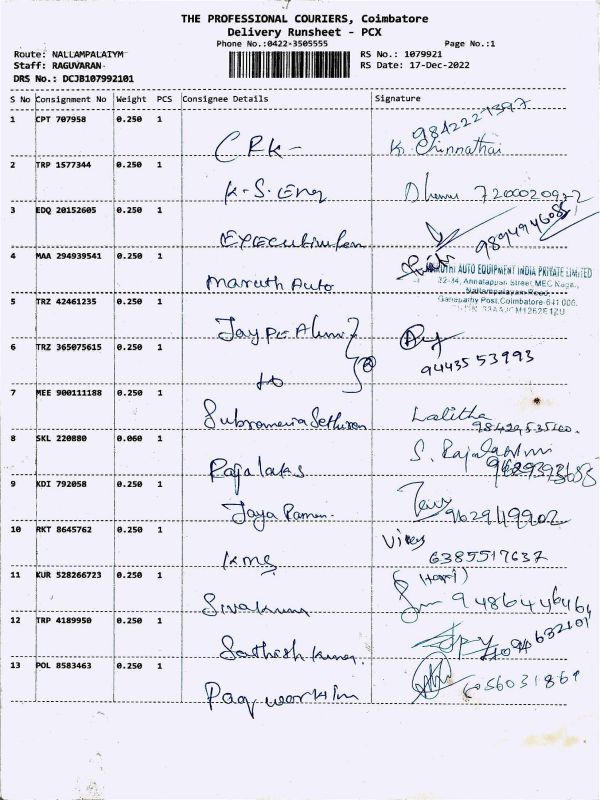 THE PROFESSIONAL COURIERS, Coimbatore
Delivery Runsheet - PCX
Phone No.:0422-3505555 Page No.:1
Route: NALLAMPALAIYM RS No.: 1079921
Staff: RAGUVARAN RS Date: 17-Dec-2022
DRS No.: DCJB107992101
S No Consignment No Weight PCS Consignee Details Signature
1 CPT 707958 0.250 1 CRK- K. Chinnathai 9842221397
2 TRP 1577344 0.250 1 K.S. Eng
3 EDQ 20152605 0.250 1
4 MAA 294939541 0.250 1 Maruth Auto
MARUTHI AUTO EQUIPMENT INDIA PRIVATE LIMITED
32-34, Annatappan Street, MEC Nagar,
Nallampalayam Road
Ganapathy Post, Coimbatore-641 006.
5 TRZ 42461235 0.250 1
6 TRZ 365075615 0.250 1 9443553993
7 MEE 900111188 0.250 1 Lalitha
8 SKL 220880 0.060 1 Rajalaks S. Rajalakshmi
9 KDI 792058 0.250 1 Jaya Raman. 9629149902
10 RKT 8645762 0.250 1 KMS 6385517637
11 KUR 528266723 0.250 1 Sivakumar (Hari)
12 TRP 4189950 0.250 1 Sathish Kumar.
13 POL 8583463 0.250 1